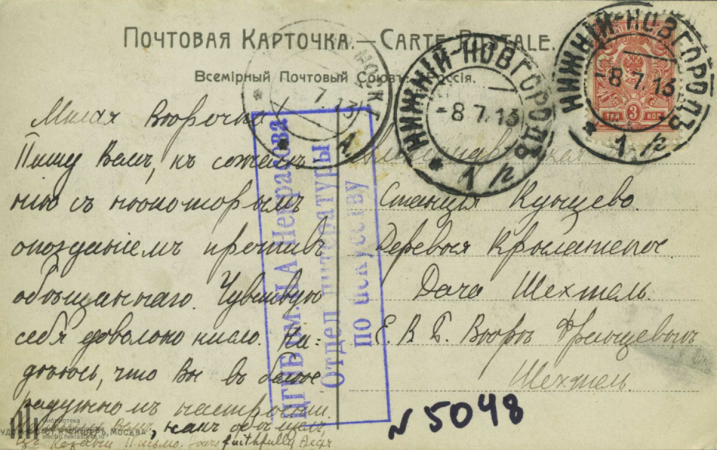 Почтовая Карточка.—Carte Postale.
Всемірный Почтовый Союзъ. Россія.
НИЖНІЙ-НОВГОРОДЪ
-8.7.13
* 1 *
НИЖНІЙ-НОВГОРОДЪ
-8.7.13
* 1 *
ТРИ 3 КОП
7.13
Милая Вѣрочка
Пишу Вамъ, къ сожалѣ-
нію съ некоторымъ
опозданіемъ противъ
обѣщаннаго. Чувствую
себя довольно кисло. На-
дѣюсь, что Вы въ болѣе
радужномъ настроеніи.
Вамъ, какъ обѣщалъ,
письмо. Yours faithfully
Александровская
Станція Кунцево.
Деревня Крылатское.
Дача Шехтель.
Е. В. Б. Вѣрѣ Францевнѣ
Шехтель.
ЦГПБ им. Н.А. Некрасова
Отдел литературы
по искусству
N 5048